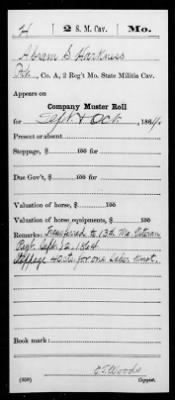 H 2 S. M. Cav. Mo.
Abram S. Harkness
Pvt., Co. A, 2 Reg't Mo. State Militia Cav.
Appears on
Company Muster Roll
for Sept & Oct, 1864.
Present or absent
Stoppage, $ 100 for
Due Gov't, $ 100 for
Valuation of horse, $ 100
Valuation of horse equipments, $ 100
Remarks: Transferred to 13th Mo. Veteran
Regt. Sept. 12, 1864.
Stoppage 40 cts. for one Saber Knot.
Book mark:
E. T. Woods
(359) Copyist.